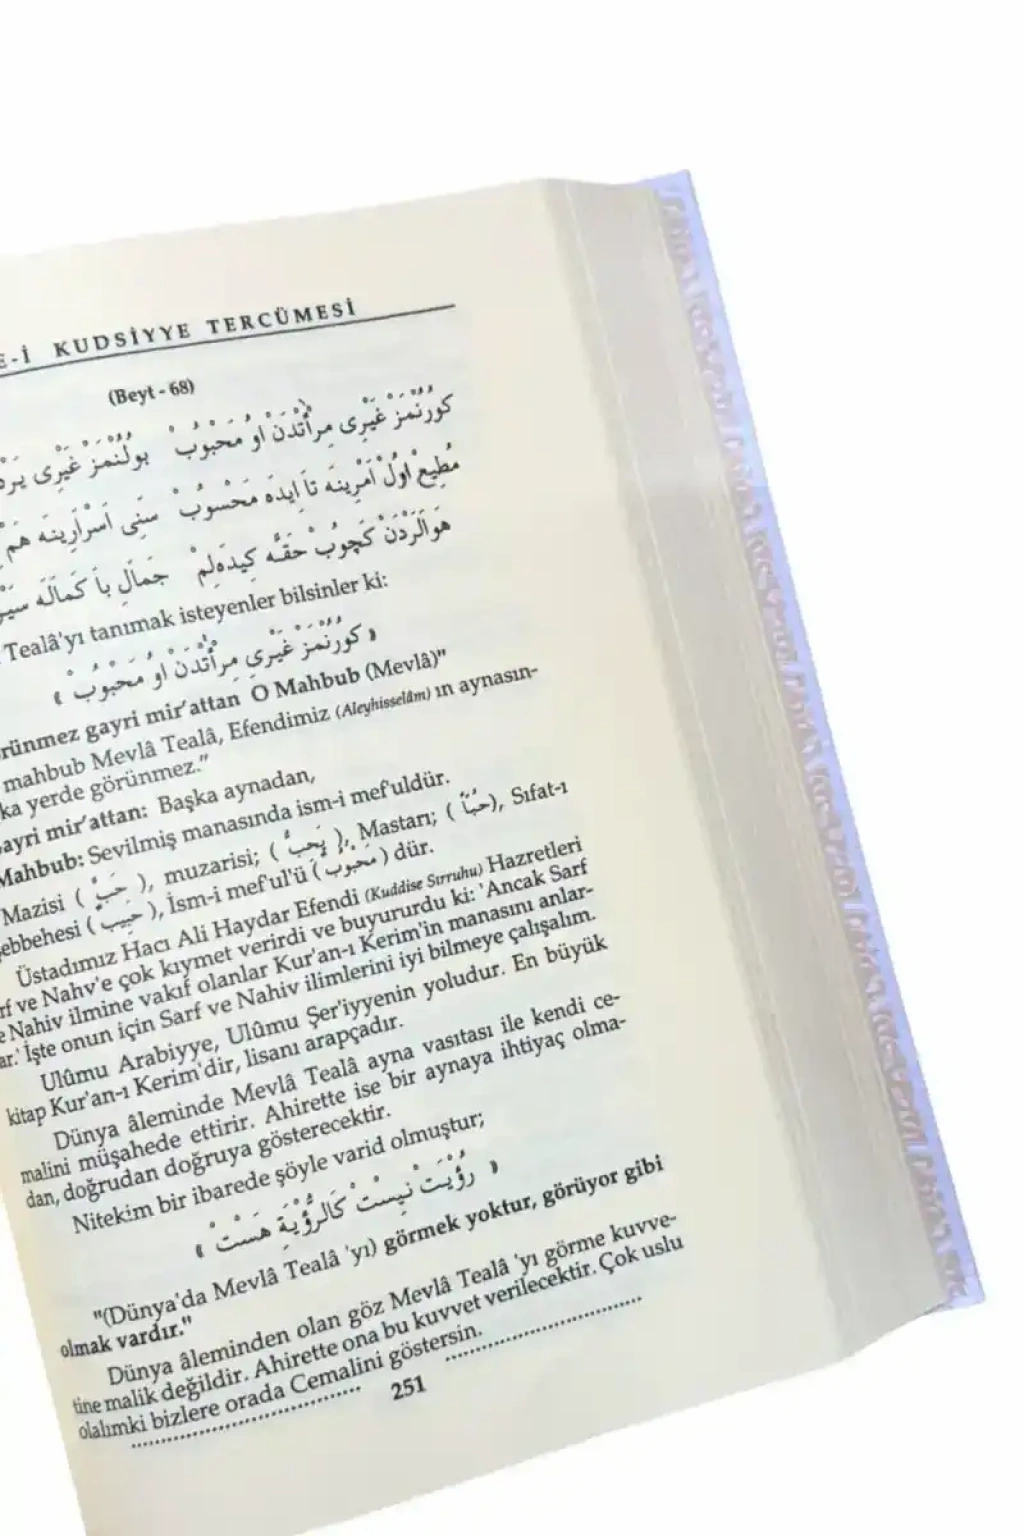 E-İ KUDSİYYE TERCÜMESİ
(Beyt - 68)
كُورُنْمَزْ غَيْرِى مِرْأَتْدَنْ اُو مَحْبُوبْ بُولُنْمَزْ غَيْرِى
مُطِيعْ اُولْ اَمْرِينَه تَا اِيدَه مَحْسُوبْ سَنِى اَسْرَارِينَه هَمْ
هَوَالَرْدَنْ كَچُوبْ حَقَّه كِيدَه لِمْ جَمَالِ بَا كَمَالَه
Tealâ'yı tanımak isteyenler bilsinler ki:
« كُورُنْمَزْ غَيْرِي مِرْأَتْدَنْ اُو مَحْبُوبْ »
rünmez gayri mir'attan O Mahbub (Mevlâ)"
mahbub Mevlâ Tealâ, Efendimiz (Aleyhisselâm) ın aynasın-
ka yerde görünmez."
ayri mir'attan: Başka aynadan,
Mahbub: Sevilmiş manasında ism-i mef'uldür.
Mazisi ( حَبَّ ), muzarisi; ( يُحِبُّ ), Mastarı; ( حُبًّا ), Sıfat-ı
ebbehesi ( حَبِيبٌ ), İsm-i mef'ul'ü ( مَحْبُوبٌ ) dür.
Üstadımız Hacı Ali Haydar Efendi (Kuddise Sırruhu) Hazretleri
rf ve Nahv'e çok kıymet verirdi ve buyururdu ki: 'Ancak Sarf
e Nahiv ilmine vakıf olanlar Kur'an-ı Kerim'in manasını anlar-
ar.' İşte onun için Sarf ve Nahiv ilimlerini iyi bilmeye çalışalım.
Ulûmu Arabiyye, Ulûmu Şer'iyyenin yoludur. En büyük
kitap Kur'an-ı Kerim'dir, lisanı arapçadır.
Dünya âleminde Mevlâ Tealâ ayna vasıtası ile kendi ce-
malini müşahede ettirir. Ahirette ise bir aynaya ihtiyaç olma-
dan, doğrudan doğruya gösterecektir.
Nitekim bir ibarede şöyle varid olmuştur;
« رُؤْيَتْ نِيسْتْ كَالرُّؤْيَةِ هَسْتْ »
"(Dünya'da Mevlâ Tealâ 'yı) görmek yoktur, görüyor gibi
olmak vardır."
Dünya âleminden olan göz Mevlâ Tealâ 'yı görme kuvve-
tine malik değildir. Ahirette ona bu kuvvet verilecektir. Çok uslu
olalımki bizlere orada Cemalini göstersin.
251